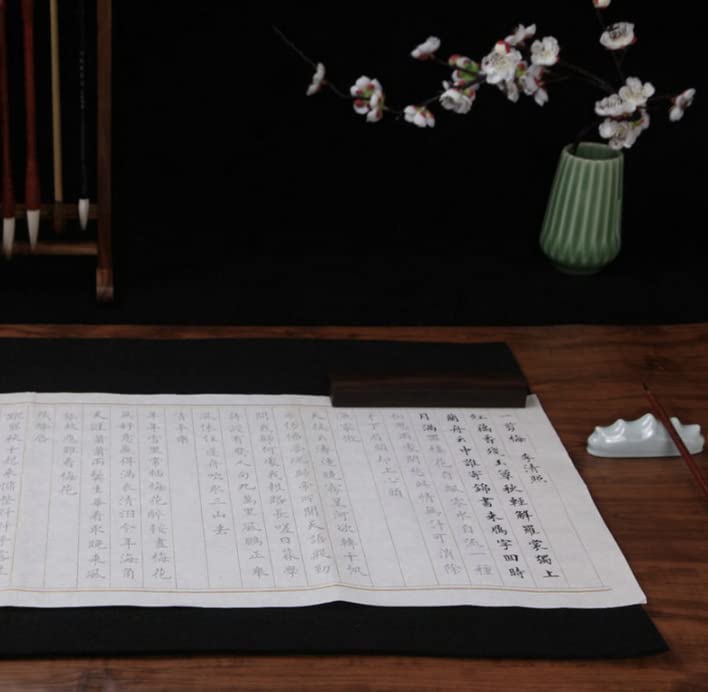 一剪梅 李清照
紅藕香殘玉簟秋輕解羅裳獨上
蘭舟云中誰寄錦書來雁字回時
月滿西樓花自飄零水自流一種
相思兩處閑愁此情無計可消除
才下眉頭卻上心頭
漁家傲
天接云濤連曉霧星河欲轉千帆
舞仿佛夢魂歸帝所聞天語殷勤
問我歸何處我報路長嗟日暮學
詩謾有驚人句九萬里風鵬正舉
風休住蓬舟吹取三山去
清平樂
年年雪里常插梅花醉挼盡梅花
無好意贏得滿衣清淚今年海角
天涯蕭蕭兩鬢生華看取晚來風
勢故應難看梅花
點絳唇
蹴罷秋千起來慵整纖纖手露濃